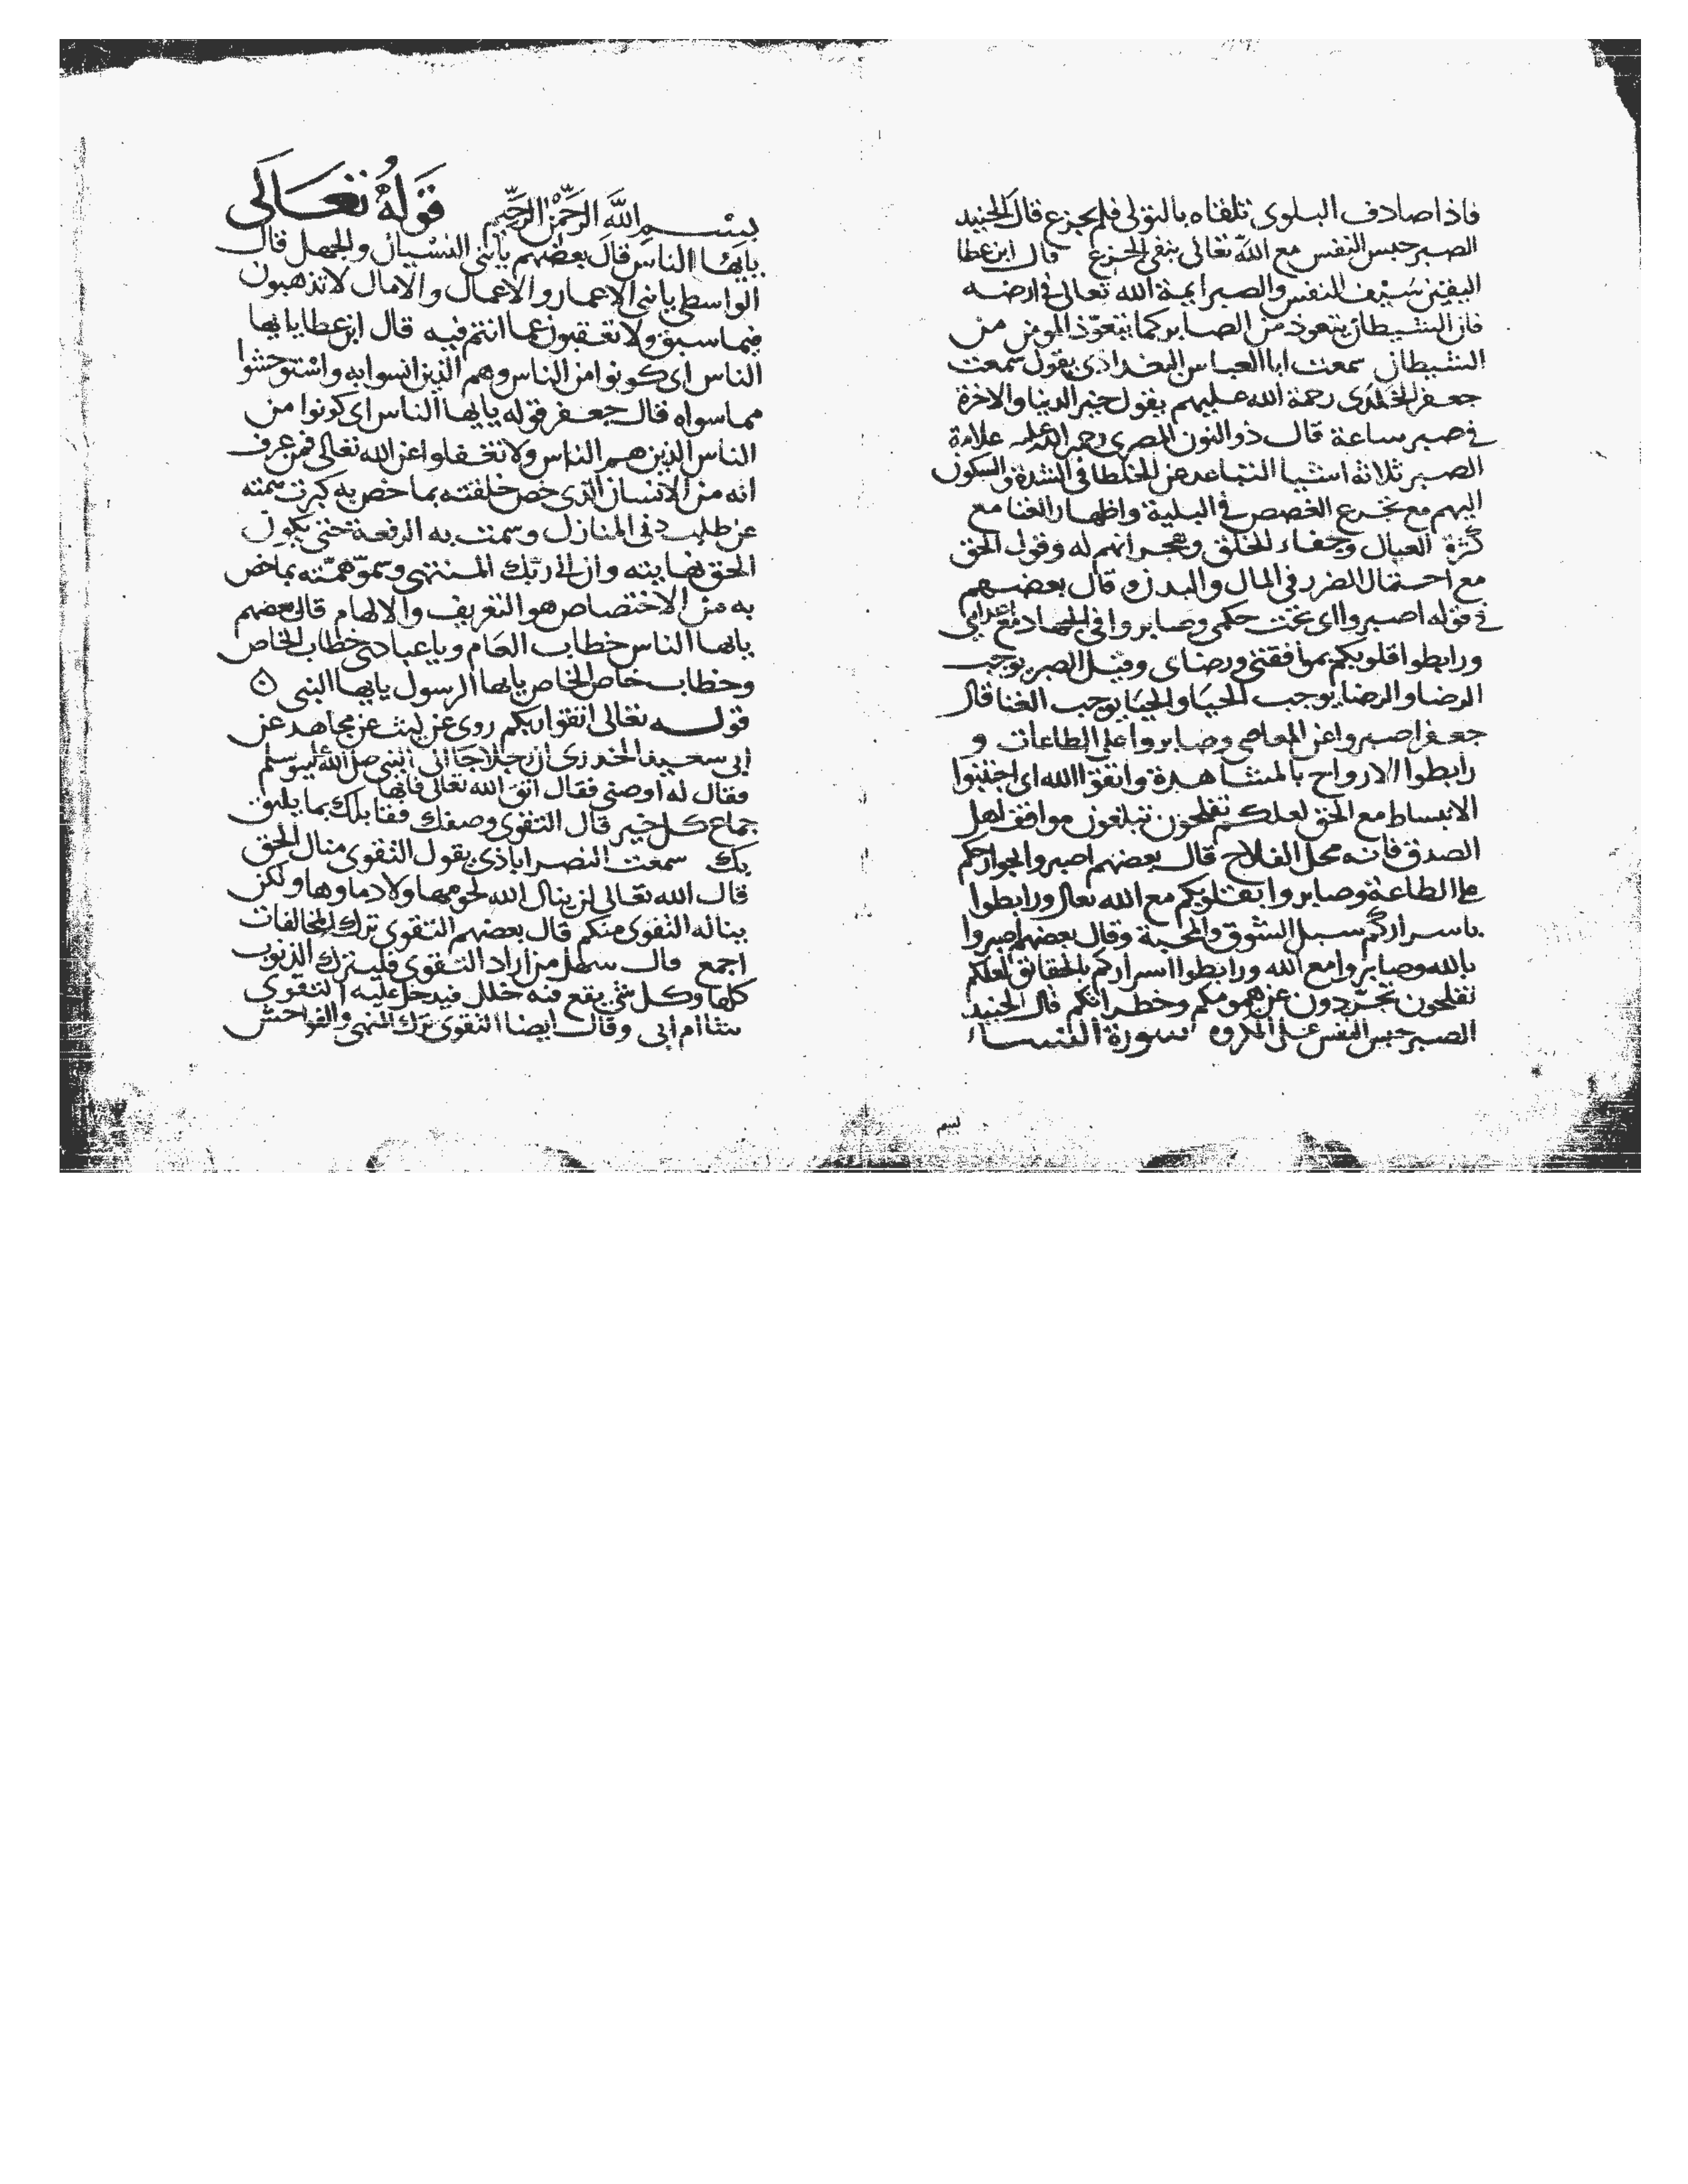 فاذا صادف البلوى تلقاه بالتولى فلم يجزع قال الجنيد
الصبر حبس النفس مع الله تعالى بنفى الجزع قال ابن عطا
اليقين سيف النفس والصبر ايمة الله تعالى فى ارضه
فان الشيطان يتعوذ من الصابر كما يتعوّذ المومن من
الشيطان سمعت ابا العباس البغدادى يقول سمعت
جعفر الخلدى رحمة الله عليهم يقول خير الدنيا والاخرة
فى صبر ساعة قال ذو النون المصرى رحمه الله عليه علامة
الصبر ثلاثة اشيا التباعد عن الخلطا فى الشدة والسكون
اليهم مع تجرع الغصص فى البلية واظهار الغنا مع
كثرة العيال وجفاء الخلق وهجرانهم له وقول الحق
مع احتمال الضرر فى المال والبدن وقال بعضهم
فى قوله اصبروا اى تحت حكمى وصابروا فى الجهاد مع اعداىى
ورابطوا قلوبكم بموافقتى ورضاى وقيل الصبر يوجب
الرضا والرضا يوجب الحيَا والحيَا يوجب الغنا قال
جعفر اصبروا عن المعاصى وصابروا على الطاعات و
رابطوا الارواح بالمشاهدة واتقوا الله اى اجتنبوا
الانبساط مع الحق لعلكم تفلحون تبلغون مواقف اهل
الصدق فانه محل الفلاح قال بعضهم اصبروا بجوارحكم
على الطاعة وصابروا بقلوبكم مع الله تعالى ورابطوا
باسراركم سبل الشوق والمحبة وقال بعضهم اصبروا
بالله وصابروا مع الله ورابطوا اسراركم بالحقايق لعلكم
تفلحون تجرّدون عن همومكم وخطراتكم قال الجنيد
الصبر حبس النفس على المكروه سورة النساء
بسم
بسم الله الرحمن الرحيم قوله تعالى
يايها الناس قال بعضهم يا بنى النسيان والجهل قال
الواسطى يا بنى الاعمار والاعمال والامال لا تذهبون
فيما سبق ولا تعقبون عما انتم فيه قال ابن عطا يا يها
الناس اى كونوا من الناس وهم الذين انسوا به واستوحشوا
مما سواه قال جعفر قوله يايها الناس اى كونوا من
الناس الذين هم الناس ولا تغفلوا عن الله تعالى فمن عرف
انه من الانسان الذى خص خلقته بما خص به كبرت همته
عن طلب دنى المنازل وسمت به الرفعة حتى يكون
الحق نهايته وان الى ربّك المنتهى وسموّ همّته بما خص
به من الاختصاص هو التعريف والالهام قال بعضهم
يايها الناس خطاب العَام ويا عبادى خطاب الخاص
وخطاب خاص الخاص يايها الرسول يايها النبى
قوله تعالى اتقوا ربكم روى عن ليث عن مجاهد عن
ابى سعيد الخدرى ان رجلا جا الى النبى صلى الله عليه وسلم
فقال له اوصنى فقال اتق الله تعالى فانها
جماع كل خير قال التقوى وصفك فقابلك بما يليق
بك سمعت النصراباذى يقول التقوى منال الحق
قال الله تعالى لن ينال الله لحومها ولا دماوها ولكن
يناله التقوى منكم قال بعضهم التقوى ترك المخالفات
اجمع قال سهل من اراد التقوى فليترك الذنوب
كلها وكل شى يقع فيه خلل فيدخل عليه التقوى
شا ام ابى وقال ايضا التقوى ترك المنهى والفواحش